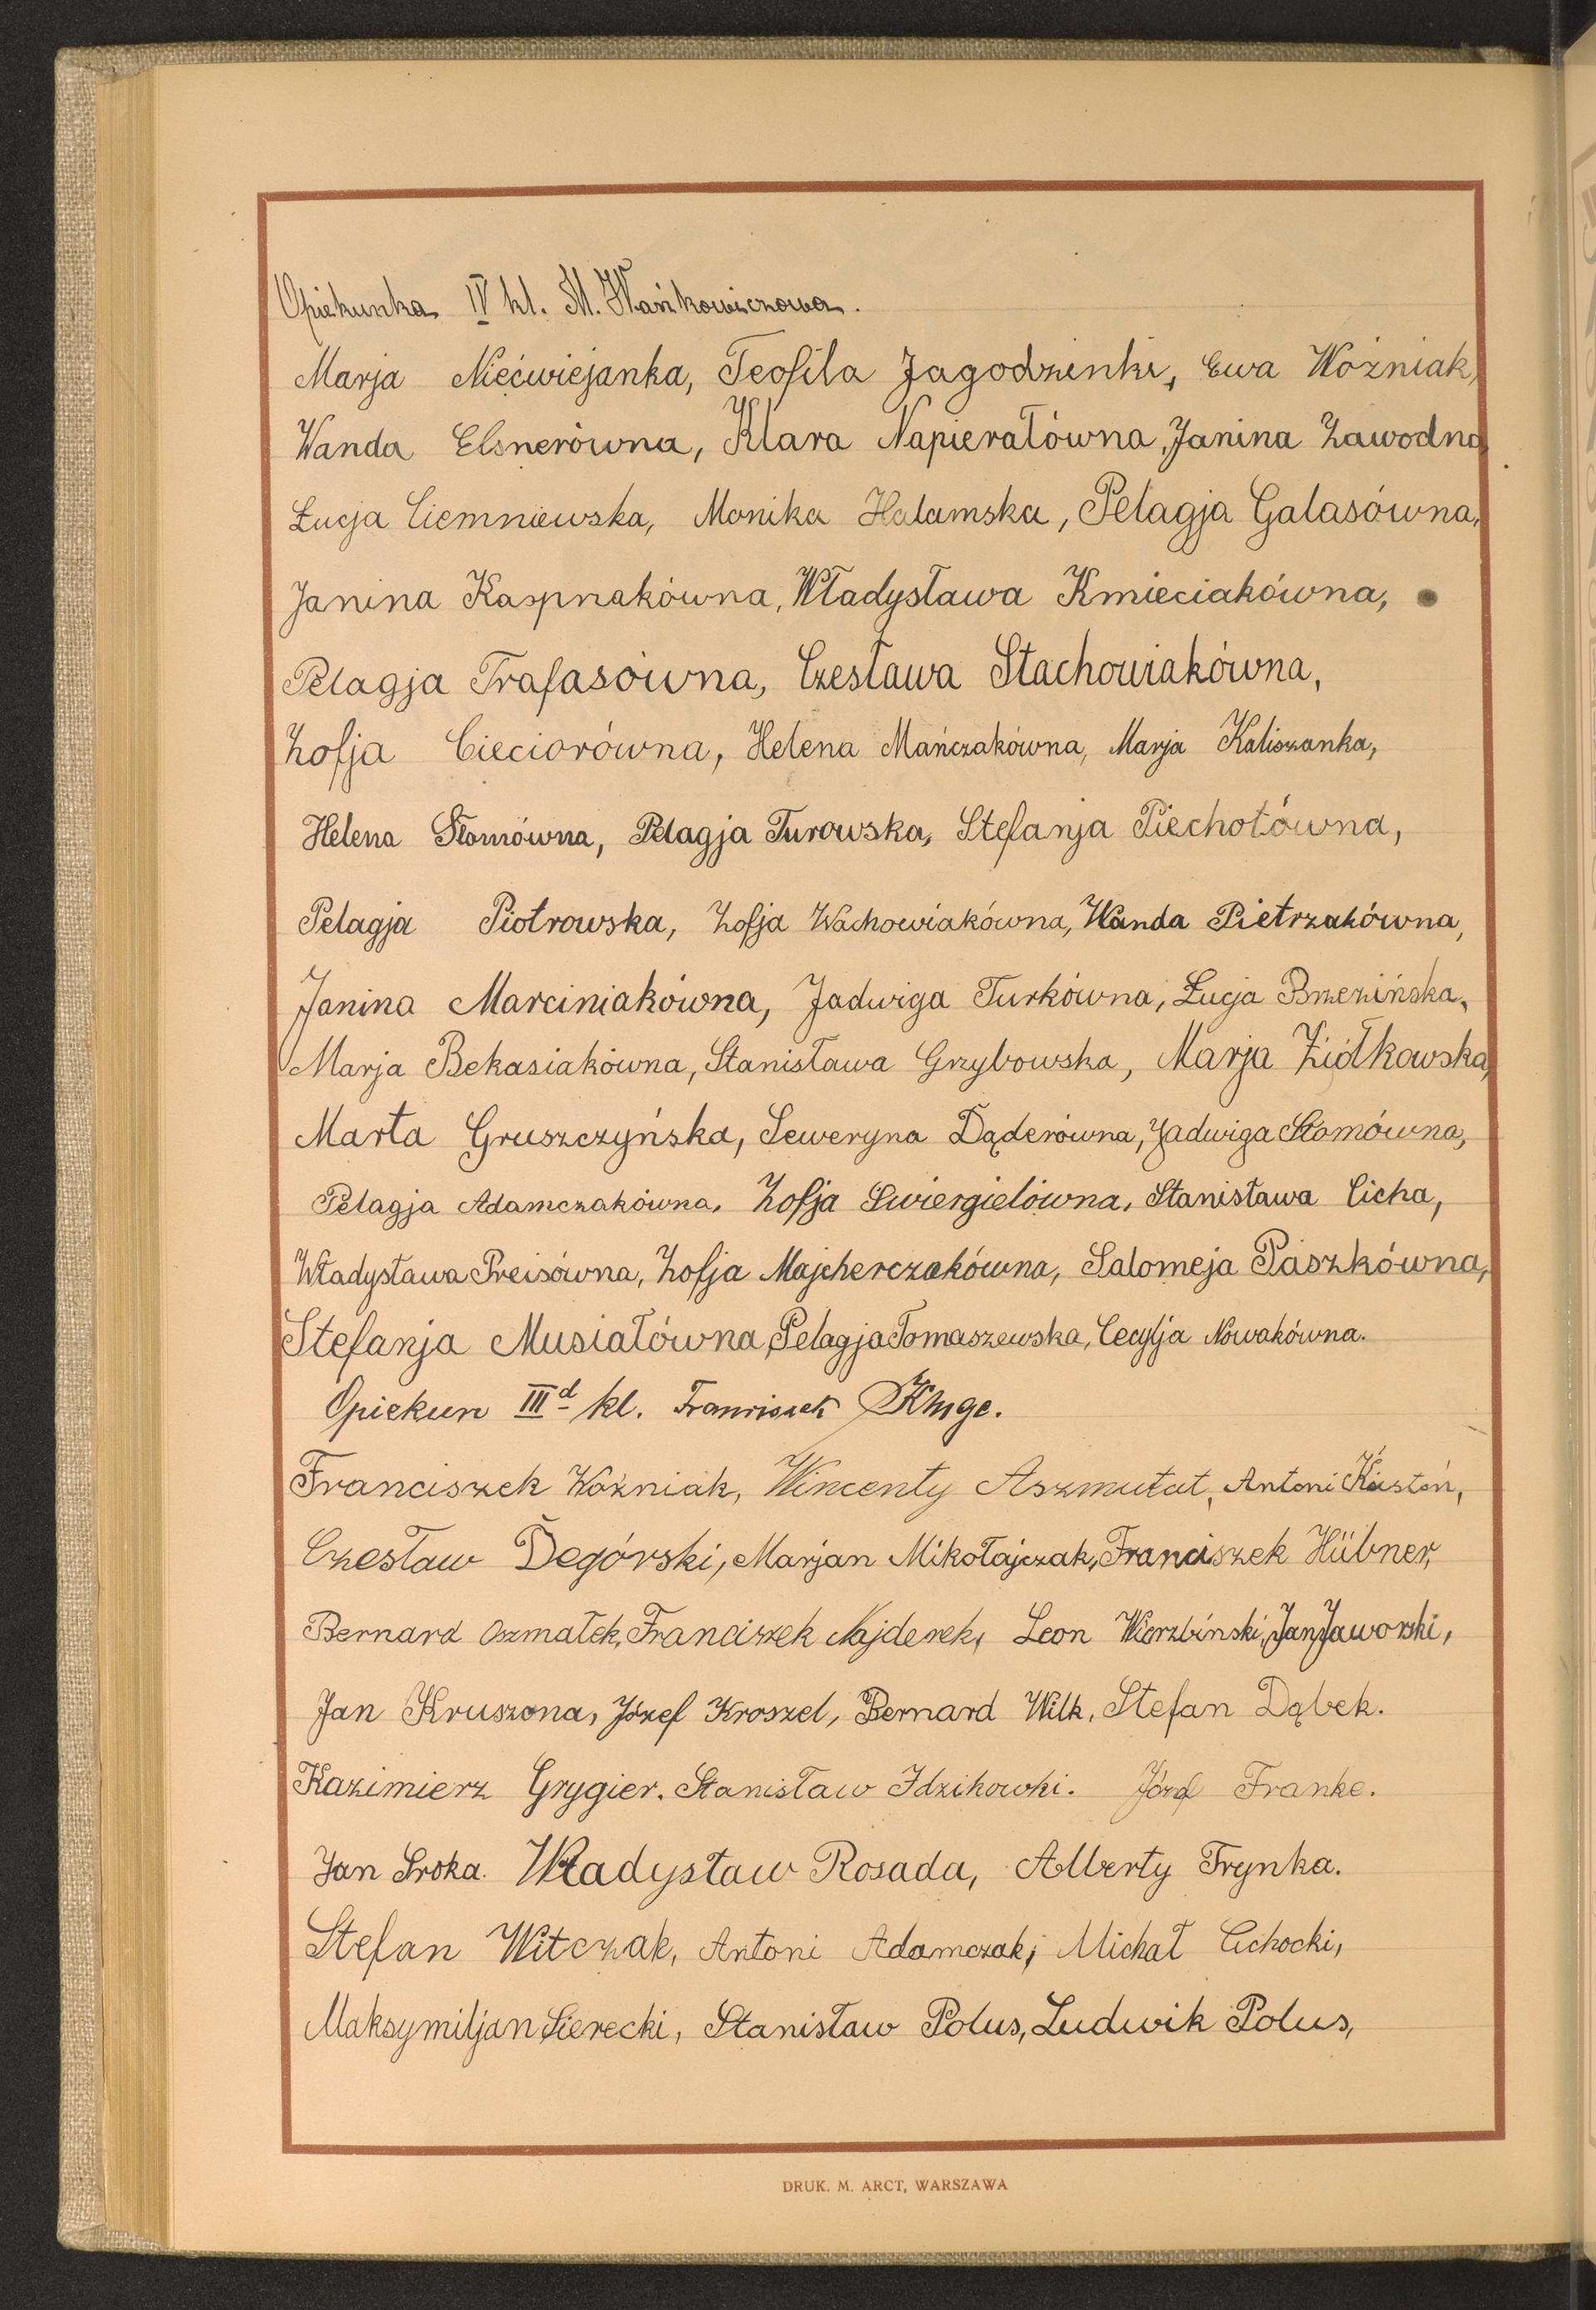 Opiekunka IV kl. M. Wańkowiczowa.
Marja Niećwiejanka, Teofila Jagodzinki, Ewa Woźniak,
Wanda Elsnerówna, Klara Napierałówna, Janina Zawodna,
Łucja Ciemniewska, Monika Halamska, Pelagja Galasówna,
Janina Kasprzakówna, Władysława Kmieciakówna,
Pelagja Trafasówna, Czesława Stachowiakówna,
Zofja Cieciorówna, Helena Mańczakówna, Marja Kaliszanka,
Helena Słomówna, Pelagja Turowska, Stefanja Piechotówna,
Pelagja Piotrowska, Zofja Wachowiakówna, Wanda Pietrzakówna,
Janina Marciniakówna, Jadwiga Turkówna, Łucja Brzezińska,
Marja Bekasiakówna, Stanisława Grzybowska, Marja Ziółkowska,
Marta Gruszczyńska, Seweryna Dąderówna, Jadwiga Słomówna,
Pelagja Adamczakówna, Zofja Swiergielówna, Stanisława Cicha,
Władysława Preisówna, Zofja Majcherczakówna, Salomeja Paszkówna,
Stefanja Musiałówna, Pelagja Tomaszewska, Cecylja Nowakówna.
Opiekun III d kl. Franciszek Kluge.
Franciszek Woźniak, Wincenty Aszmutat, Antoni Kastoń,
Czesław Degórski, Marjan Mikołajczak, Franciszek Hübner,
Bernard Oszmałek, Franciszek Najderek, Leon Wierzbiński, Jan Jaworski,
Jan Kruszona, Józef Kroszel, Bernard Wilk, Stefan Dąbek.
Kazimierz Grygier. Stanisław Idzikowki. Józef Franke.
Jan Sroka. Władysław Rosada, Alberty Trynka.
Stefan Witczak, Antoni Adamczak, Michał Cichocki,
Maksymiljan Sierecki, Stanisław Polus, Ludwik Polus,
DRUK. M. ARCT, WARSZAWA